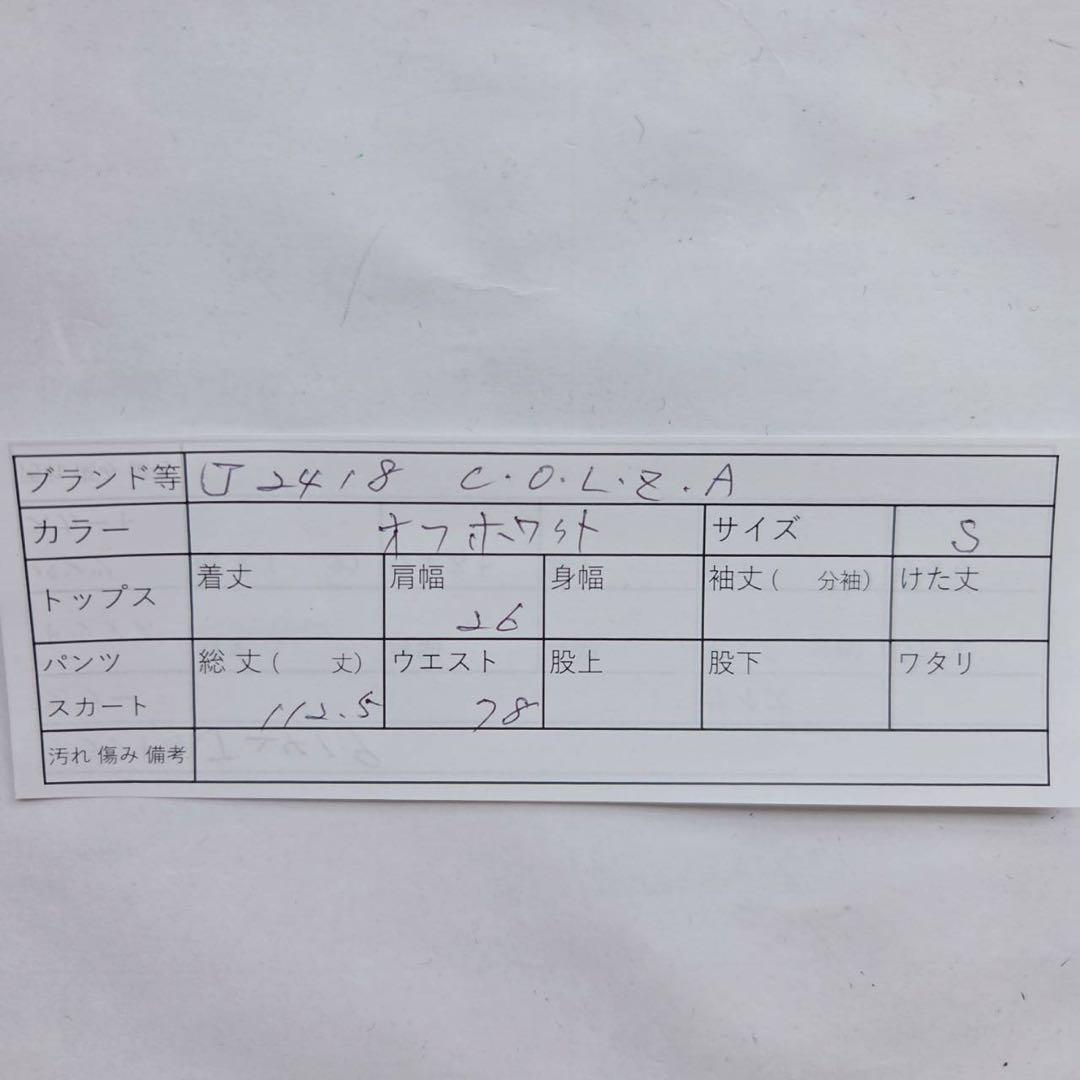 ブランド等 U J2418 C.O.L.Z.A
カラー オフホワイト サイズ S
トップス 着丈 肩幅 26 身幅 袖丈( 分袖) けた丈
パンツ スカート 総丈( 丈) 112.5 ウエスト 78 股上 股下 ワタリ
汚れ 傷み 備考